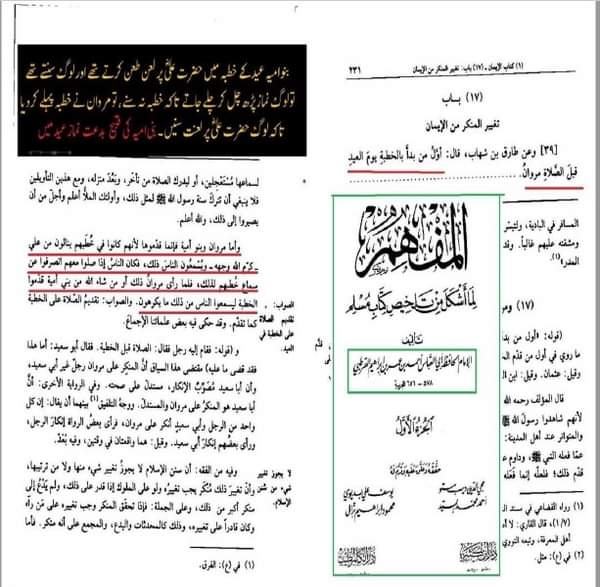 بنو امیہ عید کے خطبہ میں حضرت علیؓ پر لعن طعن کرتے تھے اور لوگ سنتے تھے
تو لوگ نماز پڑھ چل کر چلے جاتے تاکہ خطبہ نہ سنے، تو مروان نے خطبہ پہلے کر دیا
تاکہ لوگ حضرت علیؓ پر لعنت سنیں۔ بنی امیہ کی قبیح بدعت نماز عید میں
لسماعها مُستَعجلين، أو ليدرك الصلاة من تأخر، وبَعُدَ منزله، ومع هذين التأويلين
فلا ينبغي أن تترك سنة رسول الله ﷺ لمثل ذلك، وأولئك الملأ أعلم وأجل من أن
يصيروا إلى ذلك، والله أعلم.
وأما مروان وبنو أمية فإنما قدموها لأنهم كانوا في خُطَبهم ينالون من علي
ـ كرم الله وجهه ـ ويُسْمعون الناس ذلك، فكان الناس إذا صلوا معهم انصرفوا عن
سماع خُطَبهم لذلك، فلما رأى مروان ذلك أو من شاء الله من بني أمية قدّموا
الخطبة ليسمعوا الناس من ذلك ما يكرهون. والصواب: تقديم الصلاة على الخطبة
كما تقدّم. وقد حكى فيه بعض علمائنا الإجماع.
الصواب:
تقديم الصلاة
على الخطبة في
العيد
و (قوله: فقام إليه رجل فقال: الصلاة قبل الخطبة. فقال أبو سعيد: أما هذا
فقد قضى ما عليه) مقتضى هذا السياق أنَّ المنكر على مروان رجل غير أبي سعيد،
وأن أبا سعيد مُصَوِّبٌ للإنكار، مستدل على صحته. وفي الرواية الأخرى: أنَّ
أبا سعيد هو المنكر على مروان والمستدل. ووجهُ التلفيق(١) بينهما أن يقال: إن كل
واحد من الرجل وأبي سعيد أنكر على مروان، فرأى بعضُ الرواة إنكارَ الرجل،
ورأى بعضُهم إنكارَ أبي سعيد. وقيل: هما واقعتان في وقتين، وفيه بُعْدٌ.
وفيه من الفقه: أن سنن الإسلام لا يجوز تغييرُ شيء منها ولا من ترتيبها،
وأنَّ تغيير ذلك مُنْكر يجب تغييرُه ولو على الملوك إذا قدر على ذلك، ولم يَدْعُ إلى
منكر أكبر من ذلك، وعلى الجملة: فإذا تحقّق المنكر وجب تغييره على مَن رآه
وكان قادراً على تغييره، وذلك كالمحدثات والبدع، والمجمع على أنه منكر. فأما
لا يجوز تغيير
شيء من سنن
الإسلام.
(١) في (ع): الفرق.
(١) كتاب الإيمان ـ (١٧) باب: تغيير المنكر من الإيمان
٢٣١
(١٧) باب
تغيير المنكر من الإيمان
[٣٩] وعن طارق بن شهاب، قال: أوّل من بدأ بالخطبة يومَ العيدِ
قبل الصَّلاةِ مروانُ
المفهم
لما أشكل من تلخيص كتاب مسلم
تأليف
الإمام الحافظ أبي العباس أحمد بن عمر بن إبراهيم القرطبي
٥٧٨ - ٦٥٦ هجرية
الجزء الأول
حققه وعلق عليه وقدم له
محيي الدين ديب مستو
يوسف علي بديوي
أحمد محمد السيد
محمود إبراهيم بزال
المسافر في البادية، ولتيسر
ومشقته عليهم غالباً. وقد
العذرة(١)
(١٧) ومن
و (قوله: «أول من بدأ
ما روي في أول من قدّم
وقيل: عثمان. وقيل: ابن
قال المؤلف رحمه الله
لأنهم شاهدوا رسول الله ﷺ
والمتواتر عند أهل المدينة:
عمّا فعله النبي ﷺ، وداوم
قدّم ذلك؛ فلعلّه إنما فعله
(١) رواه القضاعي في مسند
(١/٧)، قال القاري: لا
أهل المعرفة، وتبعه النووي
(٢) في (ع): مثل.